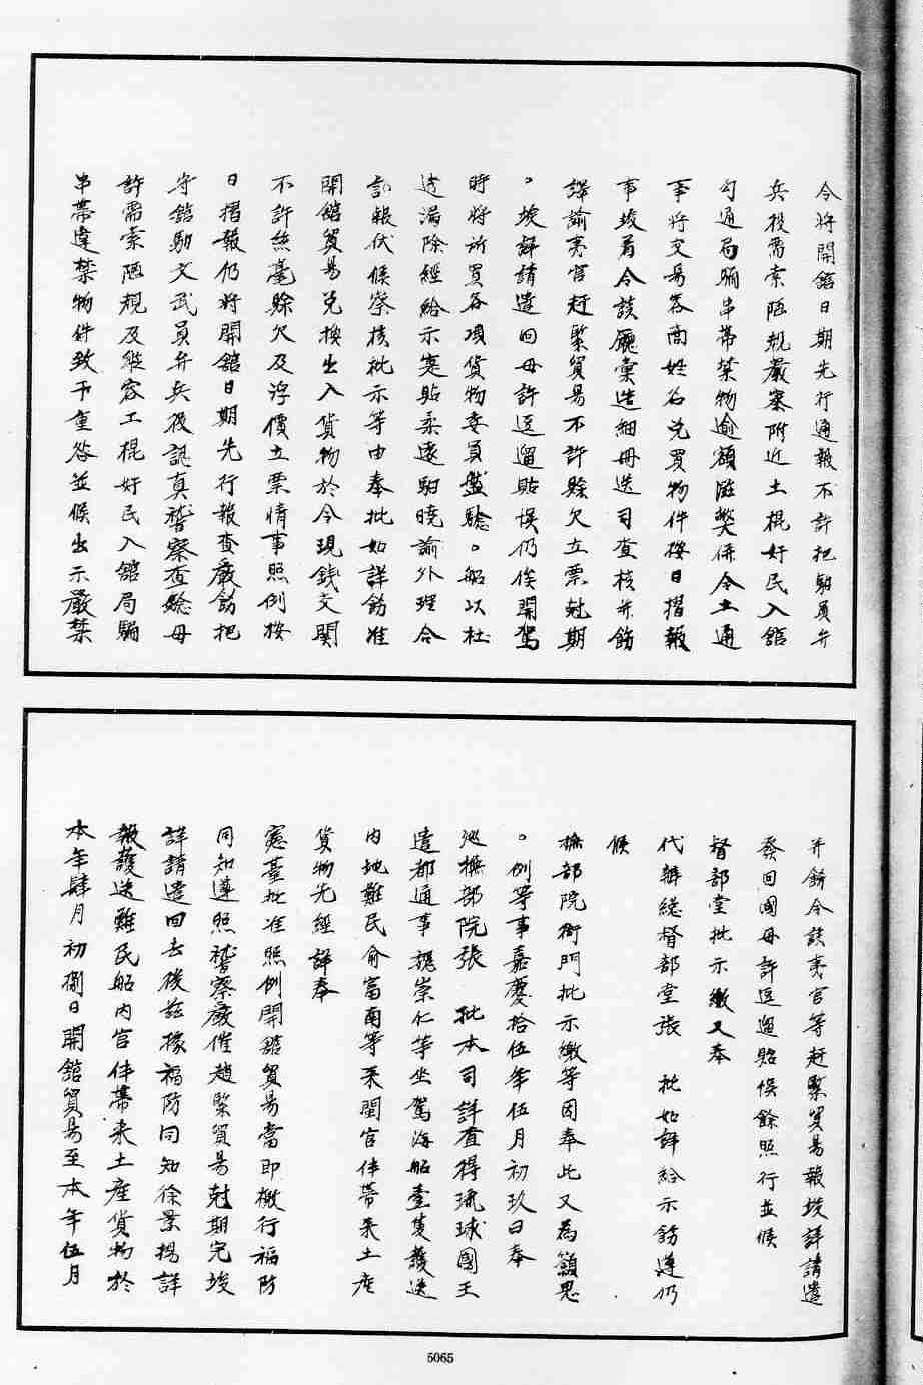 今將開舘日期先行通報不許把馹員弁
兵役需索陋規嚴察附近土棍奸民入舘
勾通局騙串帶禁物逾額滋獘併令土通
事將交易客商姓名兌買物件按日摺報
事竣着令該廳彙造細冊送司查核并飭
譯諭夷官赶緊貿易不許賒欠立票尅期
。竣詳請遣回毋許逗遛貽悞仍俟開駕
時將所買各項貨物委員盤騐。船以杜
透漏除經給示寔貼柔遠馹曉諭外理合
詳報伏候察核批示等由奉批如詳飭准
開舘貿易兌換出入貨物於令現錢交関
不許絲毫賒欠及浮價立票情事照例按
日摺報仍將開舘日期先行報查嚴飭把
守舘馹文武員弁兵役認真稽察查騐毋
許需索陋規及縱容工棍奸民入舘局騙
串帶違禁物件致干重咎並候出示嚴禁
并飭令該夷官等赶緊貿易報竣詳請遣
發回國毋許逗遛貽悞餘照行並候
督部堂批示繳又奉
代辦総督部堂張 批如詳給示飭遵仍
候
撫部院衙門批示繳等因奉此又為籲恩
。例等事嘉慶拾伍年伍月初玖日奉
廵撫部院張 批本司詳查得琉球國王
遣都通事魏崇仁等坐駕海船壹隻護送
内地難民俞富南等来閩官伴帶来土産
貨物先經詳奉
憲臺批准照例開舘貿易當即檄行福防
同知遵照稽察嚴催趕緊貿易尅期完竣
詳請遣回去後茲據福防同知徐景揚詳
報護送難民船内官伴帶来土産貨物於
本年肆月初捌日開舘貿易至本年伍月
5065